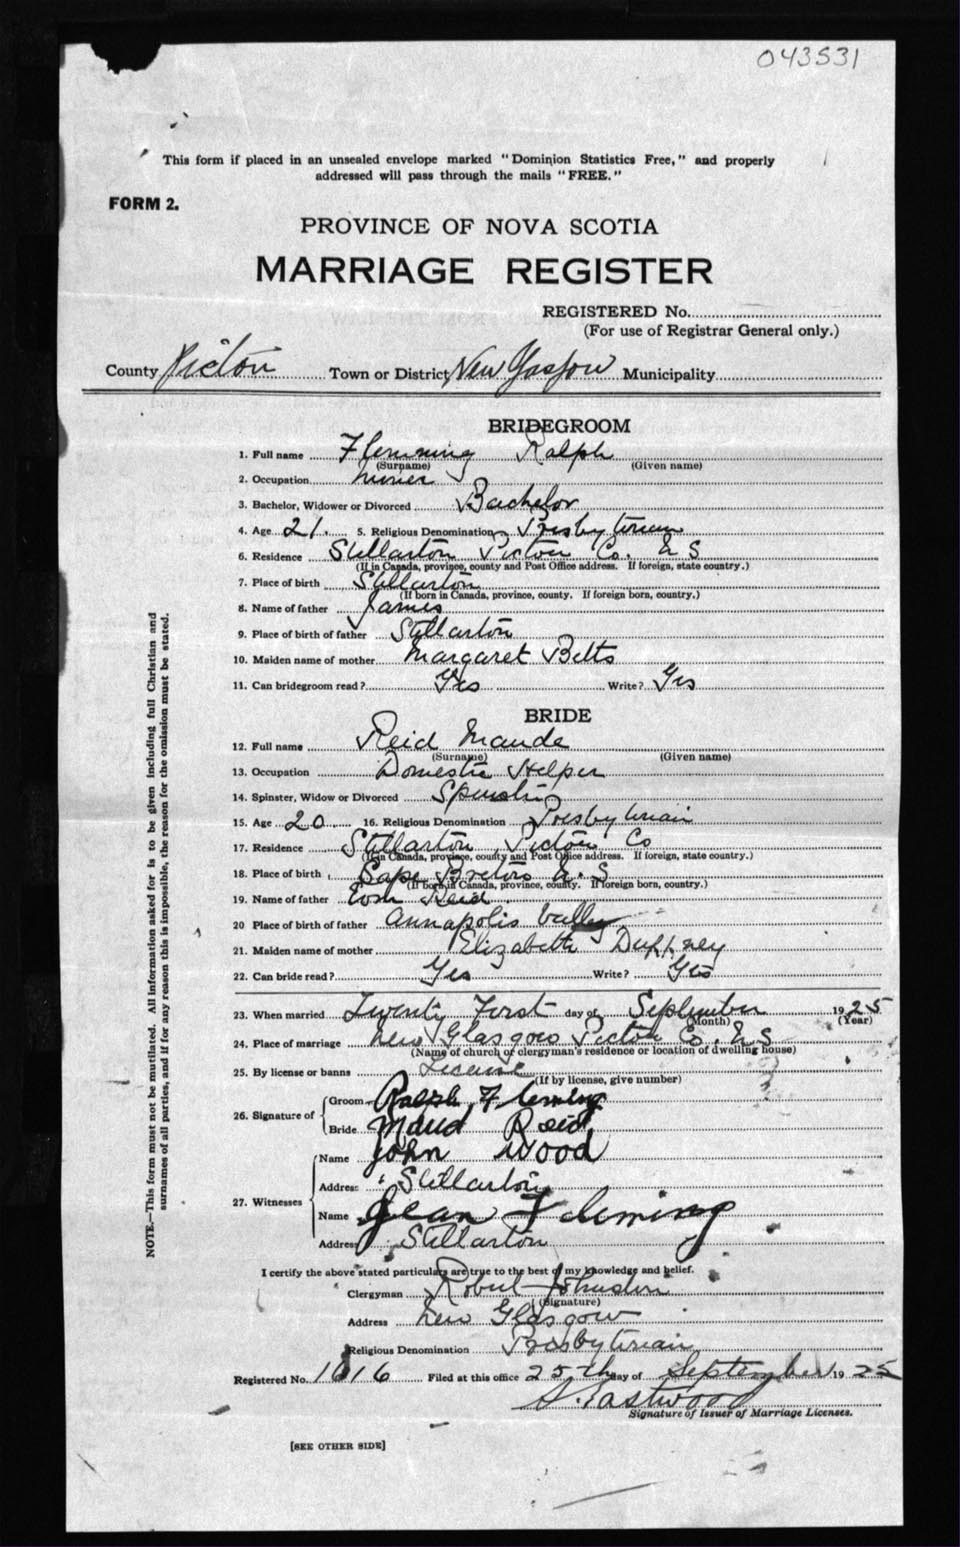 043531
This form if placed in an unsealed envelope marked "Dominion Statistics Free," and properly
addressed will pass through the mails "FREE."
FORM 2.
PROVINCE OF NOVA SCOTIA
MARRIAGE REGISTER
REGISTERED No.
(For use of Registrar General only.)
County Pictou Town or District New Glasgow Municipality
BRIDEGROOM
1. Full name Flemming Ralph
(Surname) (Given name)
2. Occupation Miner
3. Bachelor, Widower or Divorced Bachelor
4. Age 21. 5. Religious Denomination Presbyterian
6. Residence Stellarton Pictou Co. N S
(If in Canada, province, county and Post Office address. If foreign, state country.)
7. Place of birth Stellarton
(If born in Canada, province, county. If foreign born, country.)
8. Name of father James
9. Place of birth of father Stellarton
10. Maiden name of mother Margaret Betts
11. Can bridegroom read? Yes Write? Yes
BRIDE
12. Full name Reid Maude
(Surname) (Given name)
13. Occupation Domestic Helper
14. Spinster, Widow or Divorced Spinster
15. Age 20. 16. Religious Denomination Presbyterian
17. Residence Stellarton Pictou Co
(If in Canada, province, county and Post Office address. If foreign, state country.)
18. Place of birth Cape Breton N. S
(If born in Canada, province, county. If foreign born, country.)
19. Name of father Reid
20 Place of birth of father Annapolis Valley
21. Maiden name of mother Elizabeth
22. Can bride read? Yes Write? Yes
23. When married Twenty First day of September 1925
(Month) (Year)
24. Place of marriage New Glasgow Pictou Co. N S
(Name of church or clergyman's residence or location of dwelling house)
25. By license or banns License
(If by license, give number)
26. Signature of Groom Ralph Fleming
Bride Maud Reid
27. Witnesses Name John Wood
Address Stellarton
Name Jean Fleming
Address Stellarton
I certify the above stated particulars are true to the best of my knowledge and belief.
Clergyman Robert Johnston
(Signature)
Address New Glasgow
Religious Denomination Presbyterian
Registered No. 1616 Filed at this office 25th day of September 1925
S. Eastwood
Signature of Issuer of Marriage Licenses.
[SEE OTHER SIDE]
NOTE.—This form must not be mutilated. All information asked for is to be given including full Christian and
surnames of all parties, and if for any reason this is impossible, the reason for the omission must be stated.